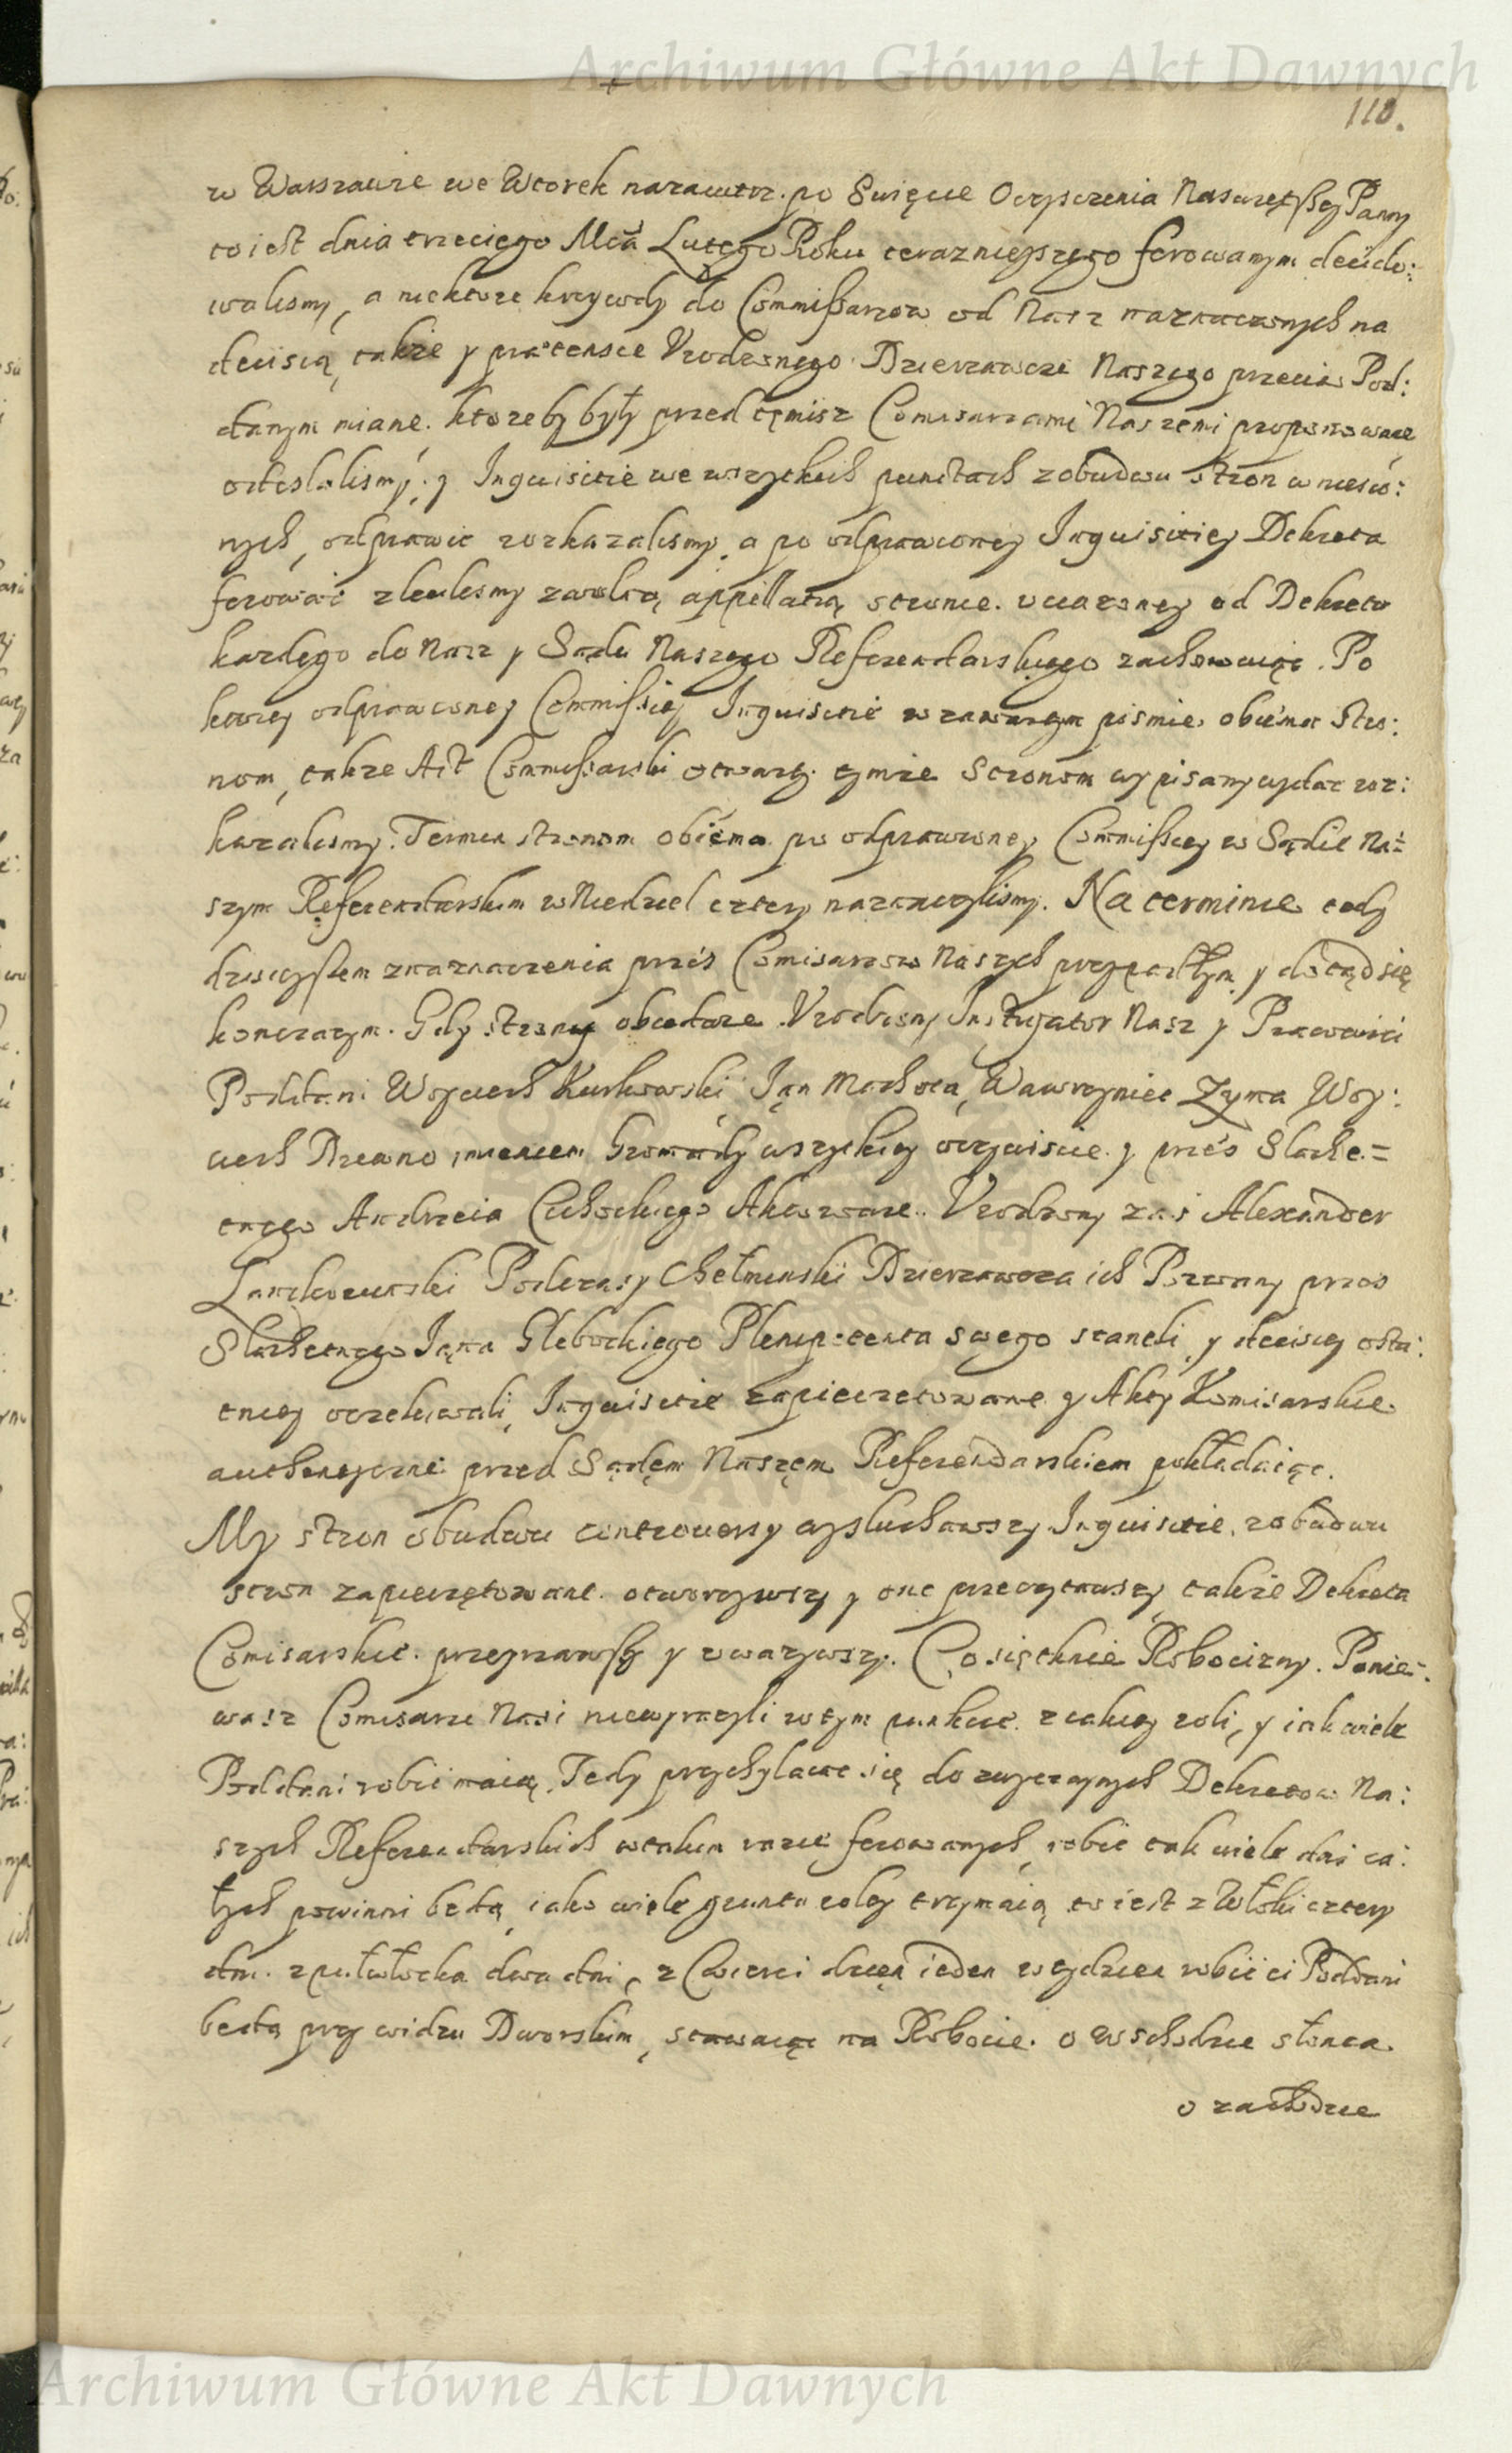 Archiwum Główne Akt Dawnych
110.
w Warszawie we Wtorek nazaiutrz po Swięcie Oczysczenia Naswięt߸ey Panny
to iest dnia trzeciego Mca Lutego Roku terazniejszego ferowanym decido:
walismy, a niektore krzywdy do Commissarzow od Nasz naznaczonych na
decisią, także y praetensie Vrodzonego Dzierzawcze Naszego przeciw Pod:
danym miane. ktoreby były przed tęmisz Comisarzami Naszemi proponowane
odeslalismy, y Inquisitie we wszytkich punctach z obudwu stron wniesio:
nych, odprawic rozkazalismy, a po odprawioney Inquisitiey Dekreta
ferowac zlecilismy zawolną appellatią stronie. uciazoney od Dekretu
kazdego do Nasz y Sądu Naszego Referendarskiego zachowuiąc. Po
ktorey odprawioney Commissiey Inquisitie w zawartym pismie obiema Stro:
nom, takze Act Commissarski otwarty. tymze Stronom wypisany wydac roz:
kazalismy. Termin stronom obiema po odprawioney Commissiey w Sądzie Na:
szym Referendarskim w Niedziel cztery naznaczylismy. Na terminie tedy
dzisieyszem z naznaczenia przes Comisarzow Naszych przypadłym y dotąd się
konczazym. Gdy strony obiedwie. Vrodzony Instygator Nasz y Pracowici
Poddani Woyciech Kurkowski, Jan Machota, Wawrzyniec Zyma Woy:
ciech Drewno, imieniem Gromady wszytkiey oczywiscie. y przes Slache:
tnego Andrzeia Cichockiego Aktorowie. Vrodzony zas Alexander
Lanckorunski Podczaszy Chełminski Dzierzawcza ich Pozwany przes
Slachetnego Jana Glebockiego Plenipotenta swego staneli, y decisiey osta:
tniey oczekiwali, Inquisitie zapieczetowane y Akty Komisarskie
authentyczne przed Sądęm Naszęm Referendarskiem pokładaiąc.
My stron obudwu controuersy wysluchawszy Inquisitie, z obudwu
stron zapieczętowane. otworzywszy y one przeczytawszy, takze Dekreta
Comisarskie. przeyrzawszy y uwazywszy. Co się tknie Robocizny. Ponie:
wasz Comisarze Nasi niewyrazyli w tym punkcie. z iakiey roli, y iak wiele
Poddani robic maią, Tedy przychylaiąc się do zwyczaynych Dekretow Na:
szych Referendarskich w takim razie ferowanych, robic tak wiele dni ca:
łych powinni będą, iako wiele gruntu roley trzymaią, to iest z Włoki cztery
dni. z pułwłoczka dwa dni, z Cwierci dzięn ieden w tydzien robic ci Poddani
będą przy widzu Dworskim, stawaiąc na Robocie. o wschodzie słonca.
o zachodzie
Archiwum Główne Akt Dawnych